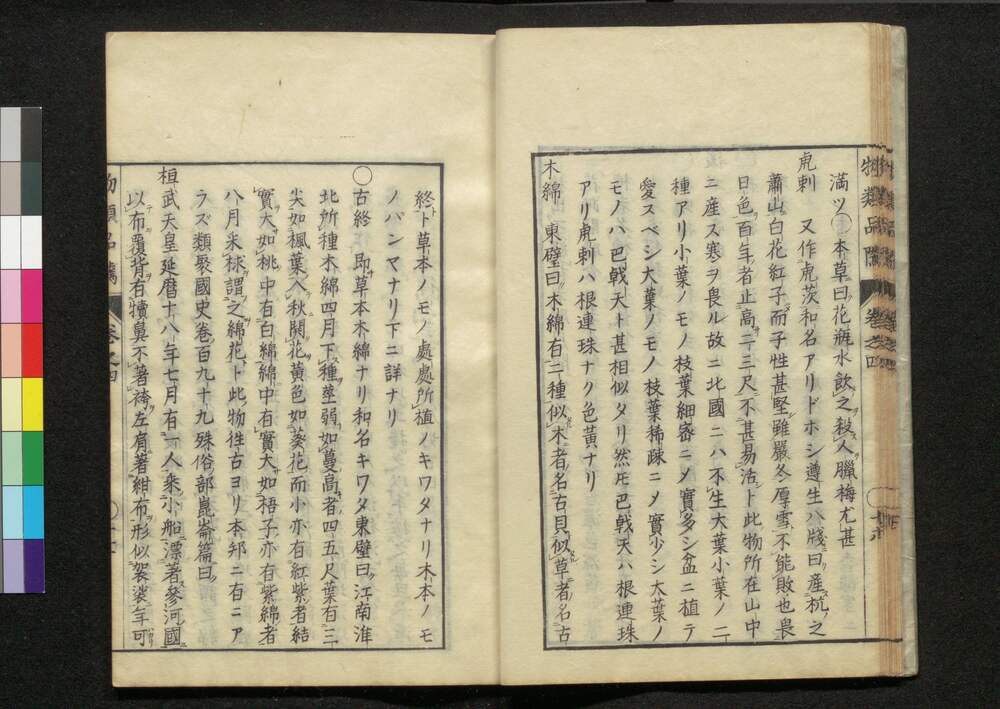 物類品隲 卷之四
滿ツ○本草曰花瓶水飲之殺人臘梅尤甚
虎刺 又作虎茨和名アリドホシ遵生八牋曰産杭之
蕭山白花紅子而子性甚堅雖嚴冬厚雪不能敗也畏
日色百年者止高二三尺不甚易活ト此物所在山中
ニ産ス寒ヲ畏ル故ニ北國ニハ不生大葉小葉ノ二
種アリ小葉ノモノ枝葉細密ニメ實多シ盆ニ植テ
愛スベシ大葉ノモノ枝葉稀疎ニメ實少シ大葉ノ
モノハ巴戟天ト甚相似タリ然モ巴戟天ハ根連珠
アリ虎刺ハ根連珠ナク色黄ナリ
木綿 東璧曰木綿有二種似木者名古貝似草者名古
終ト草本ノモノ處處所植ノキワタナリ木本ノモ
ノハパンマナリ下ニ詳ナリ
○古終 即草本木綿ナリ和名キワタ東璧曰江南淮
北所種木綿四月下種莖弱如蔓高者四五尺葉有三
尖如楓葉入秋開花黄色如葵花而小亦有紅紫者結
實大如桃中有白綿綿中有實大如梧子亦有紫綿者
八月采梂謂之綿花ト此物徃古ヨリ本邦ニ有ニア
ラズ類聚國史卷百九十九殊俗部崑崙篇曰
桓武天皇延暦十八年七月有一人乘小船漂著參河國
以布覆背有犢鼻不著袴左肩著紺布形似袈裟年可
物類品隲 卷之四